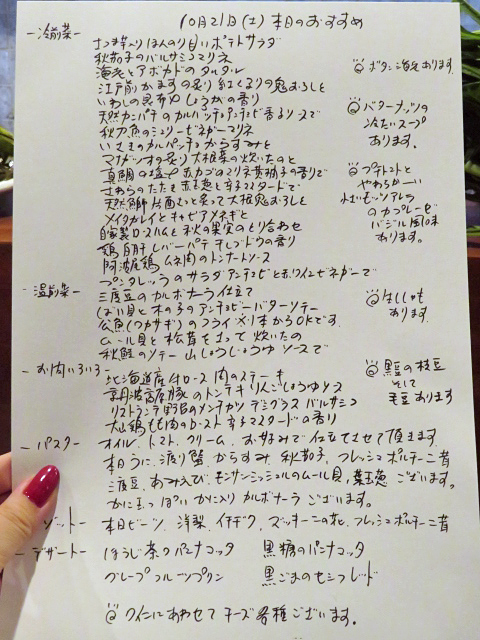 10月21日(土) 本日のおすすめ
－冷前菜－
さつま芋入りほんのり甘いポテトサラダ
秋茄子のバルサミコマリネ
海老とアボカドのタルタル
江戸前かますの炙り 紅くるりの鬼おろしと
いわしの昆布〆 しょうがの香り
天然カンパチのカルパッチョ アンチョビ香るソースで
秋刀魚のシェリービネガーマリネ
いさきのカルパッチョ からすみと
マナガツオの炙り 大根菜の炊いたのと
真鯛の塩〆 赤カブのマリネ 黄柚子の香りで
さわらのたたき 赤玉葱と辛子マスタードで
天然鰤 片面むっと炙って 大根鬼おろしと
メイタカレイとキャビア メネギと
自家製ロースハムと秋の果実のとり合わせ
鶏白肝レバーパテ 干しブドウの香り
阿波尾鶏ムネ肉のトンナートソース
プンタレッラのサラダ アンチョビと赤ワインビネガーで
◎ボタン海老あります
◎バターナッツの
冷たいスープ
あります。
◎プチトマトと
やわらかーい
水牛モッツァレラ
のカプレーゼ
バジル風味
あります。
－温前菜－
三度豆のカルボナーラ仕立て
つぶ貝と木の子のアンチョビーバターソテー
公魚(ワカサギ)のフライ ※1本からOKです。
ムール貝と松茸をさっと炊いたの
秋鮭のソテー 山しょうじょうゆソースで
◎はししゃも
あります。
－お肉いろいろ－
北海道産牛ロース肉のステーキ
京丹波高原豚のトンテキ りんごしょうゆソース
リストランテ野呂のメンチカツ デミグラスバルサミコ
大山鶏もも肉のロースト 辛子マスタードの香り
◎黒豆の枝豆
そして
毛豆あります
－パスタ－
オイル、トマト、クリーム、お好みで仕立てさせて頂きます
本日うに、渡り蟹、からすみ、秋茄子、フレッシュポルチーニ茸
三度豆、あみえび、モンサンミッシェルのムール貝、葉玉葱 ございます。
かにみそ かに入り カルボナーラ ございます。
ゾット－
本日ビーツ、洋梨、イチヂク、ズッキーニの花、フレッシュポルチーニ茸
－デザート－
ほうじ茶のパンナコッタ 黒糖のパンナコッタ
グレープフルーツプリン 黒ごまのセミフレッド
◎ワインにあわせてチーズ各種ございます。